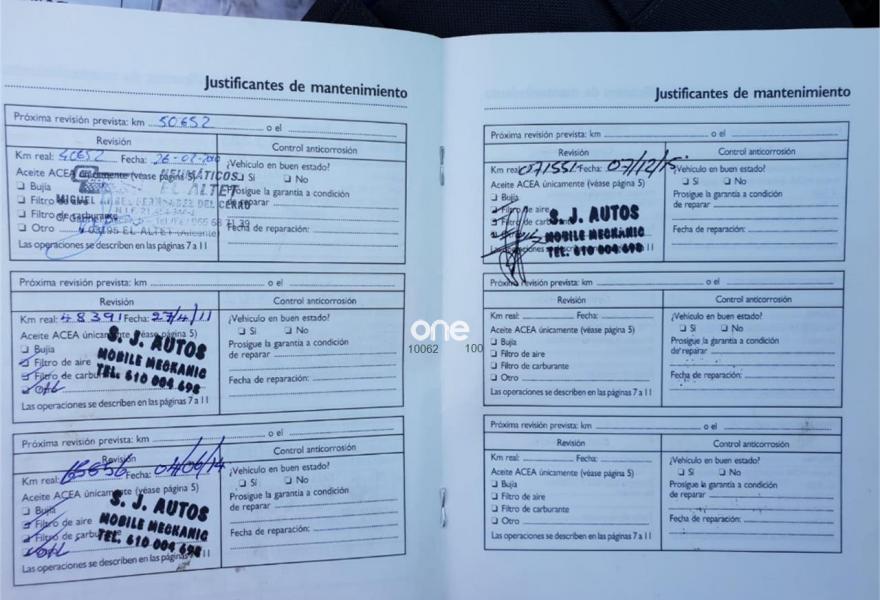 Justificantes de mantenimiento
Próxima revisión prevista: km 50652 o el
Revisión
Control anticorrosión
Km real: 40652 Fecha: 26-02-
¿Vehículo en buen estado?
Aceite ACEA únicamente (véase página 5)
❑ Sí ❑ No
❑ Bujía
Prosigue la garantía a condición
❑ Filtro
de reparar
❑ Filtro de carburante
❑ Otro
Fecha de reparación:
Las operaciones se describen en las páginas 7 a 11
NEUMÁTICOS
EL ALTET
MIGUEL ANGEL FERNANDEZ DEL CERRO
03195 EL ALTET (Alicante)
Próxima revisión prevista: km o el
Revisión
Control anticorrosión
Km real: 48391 Fecha: 27/4/11
¿Vehículo en buen estado?
Aceite ACEA únicamente (véase página 5)
❑ Sí ❑ No
❑ Bujía
Prosigue la garantía a condición
❑ Filtro de aire
de reparar
❑ Filtro de carburante
❑ OIL
Fecha de reparación:
Las operaciones se describen en las páginas 7 a 11
S. J. AUTOS
MOBILE MECKANIC
TEL. 610 004 698
Próxima revisión prevista: km o el
Revisión
Control anticorrosión
Km real: Fecha: 04/06/14
¿Vehículo en buen estado?
Aceite ACEA únicamente (véase página 5)
❑ Sí ❑ No
❑ Bujía
Prosigue la garantía a condición
❑ Filtro de aire
de reparar
❑ Filtro de carbu
❑ OIL
Fecha de reparación:
Las operaciones se describen en las páginas 7 a 11
S. J. AUTOS
MOBILE MECKANIC
TEL. 610 004 698
one
10062 100
Justificantes de mantenimiento
Próxima revisión prevista: km o el
Revisión
Control anticorrosión
Km real: 071552 Fecha: 07/12/15
¿Vehículo en buen estado?
Aceite ACEA únicamente (véase página 5)
❑ Sí ❑ No
❑ Bujía
Prosigue la garantía a condición
❑ Filtro de aire
de reparar
❑ Filtro de carb
Fecha de reparación:
operaciones se describen en las páginas 7 a 11
S. J. AUTOS
MOBILE MECKANIC
TEL. 610 004 698
Próxima revisión prevista: km o el
Revisión
Control anticorrosión
Km real: Fecha:
¿Vehículo en buen estado?
Aceite ACEA únicamente (véase página 5)
❑ Sí ❑ No
❑ Bujía
Prosigue la garantía a condición
❑ Filtro de aire
de reparar
❑ Filtro de carburante
❑ Otro
Fecha de reparación:
Las operaciones se describen en las páginas 7 a 11
Próxima revisión prevista: km o el
Revisión
Control anticorrosión
Km real: Fecha:
¿Vehículo en buen estado?
Aceite ACEA únicamente (véase página 5)
❑ Sí ❑ No
❑ Bujía
Prosigue la garantía a condición
❑ Filtro de aire
de reparar
❑ Filtro de carburante
❑ Otro
Fecha de reparación:
Las operaciones se describen en las páginas 7 a 11